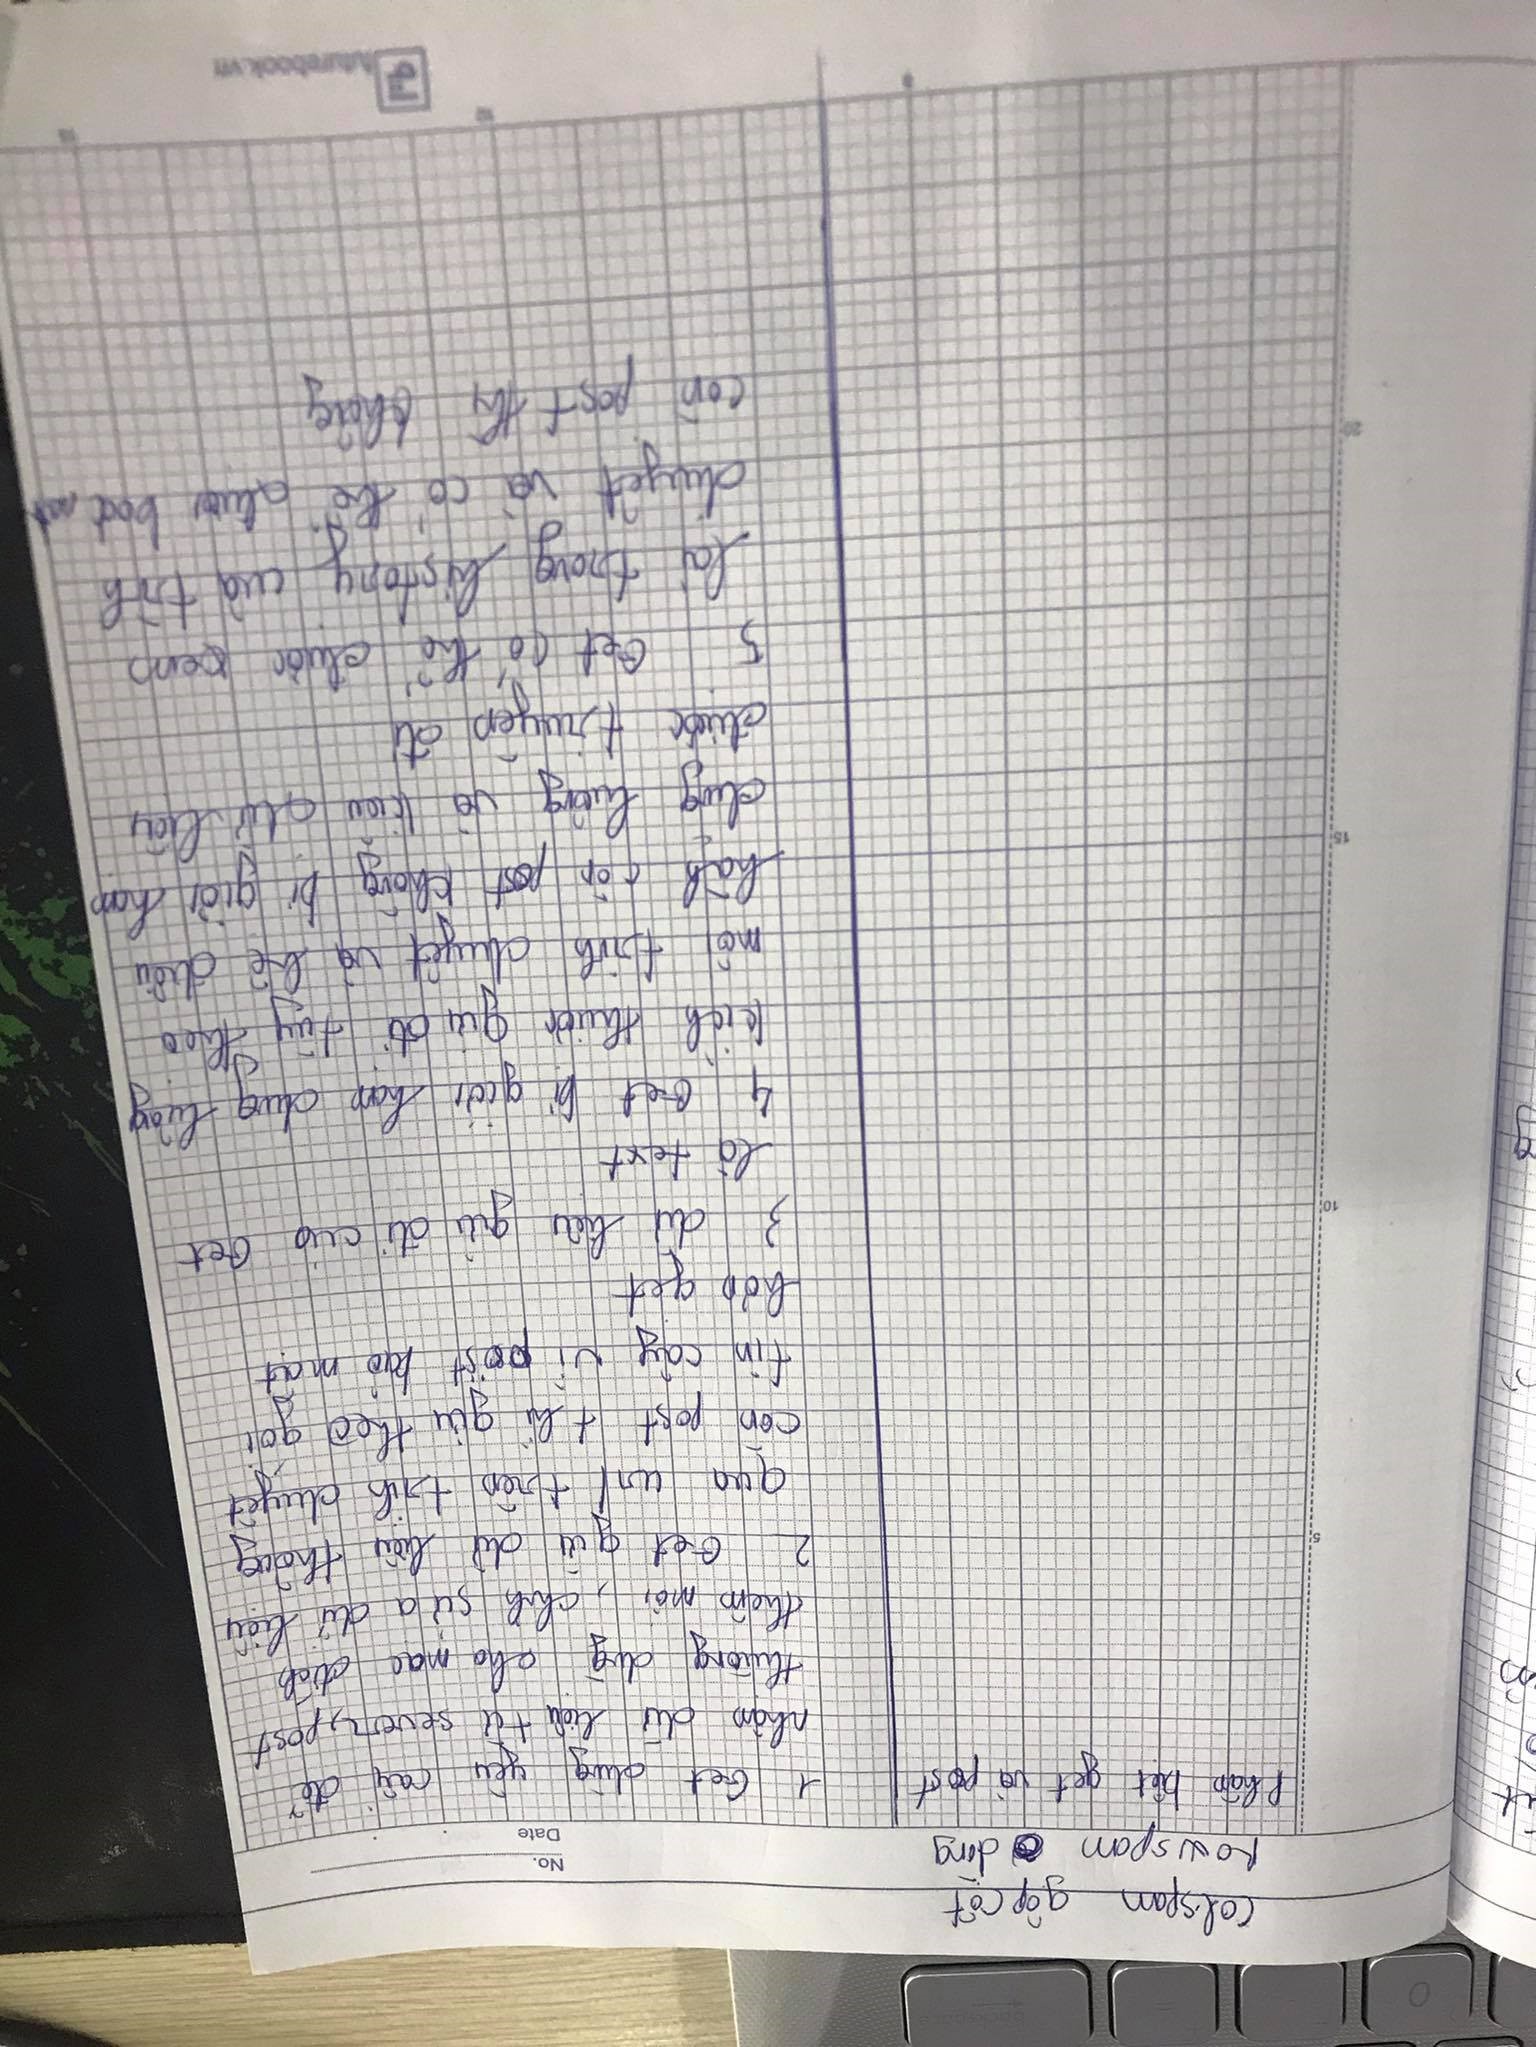 colspam gộp cột
Rowspam dòng
No.
Date
phân biệt get và post
1 Get dùng yêu cầu để
nhận dữ liệu từ sever, post
thường dùng cho mục đích
thêm mới, chỉnh sửa dữ liệu
2 Get gửi dữ liệu thông
qua url trên trình duyệt
còn post thì gửi theo gói
tin cậy vì post bảo mật
hơn get
3 dữ liệu gửi đi của Get
là text
4 Get bị giới hạn dung lượng
kích thước gửi đi tùy theo
mỗi trình duyệt và hệ điều
hành còn post không bị giới hạn
dung lượng và kiểu dữ liệu
được truyền đi
5 Get có thể được xem
lại trong history của trình
duyệt và có thể được bookmark
còn post thì không
5
10
15
20
futurebook.vn
backspace